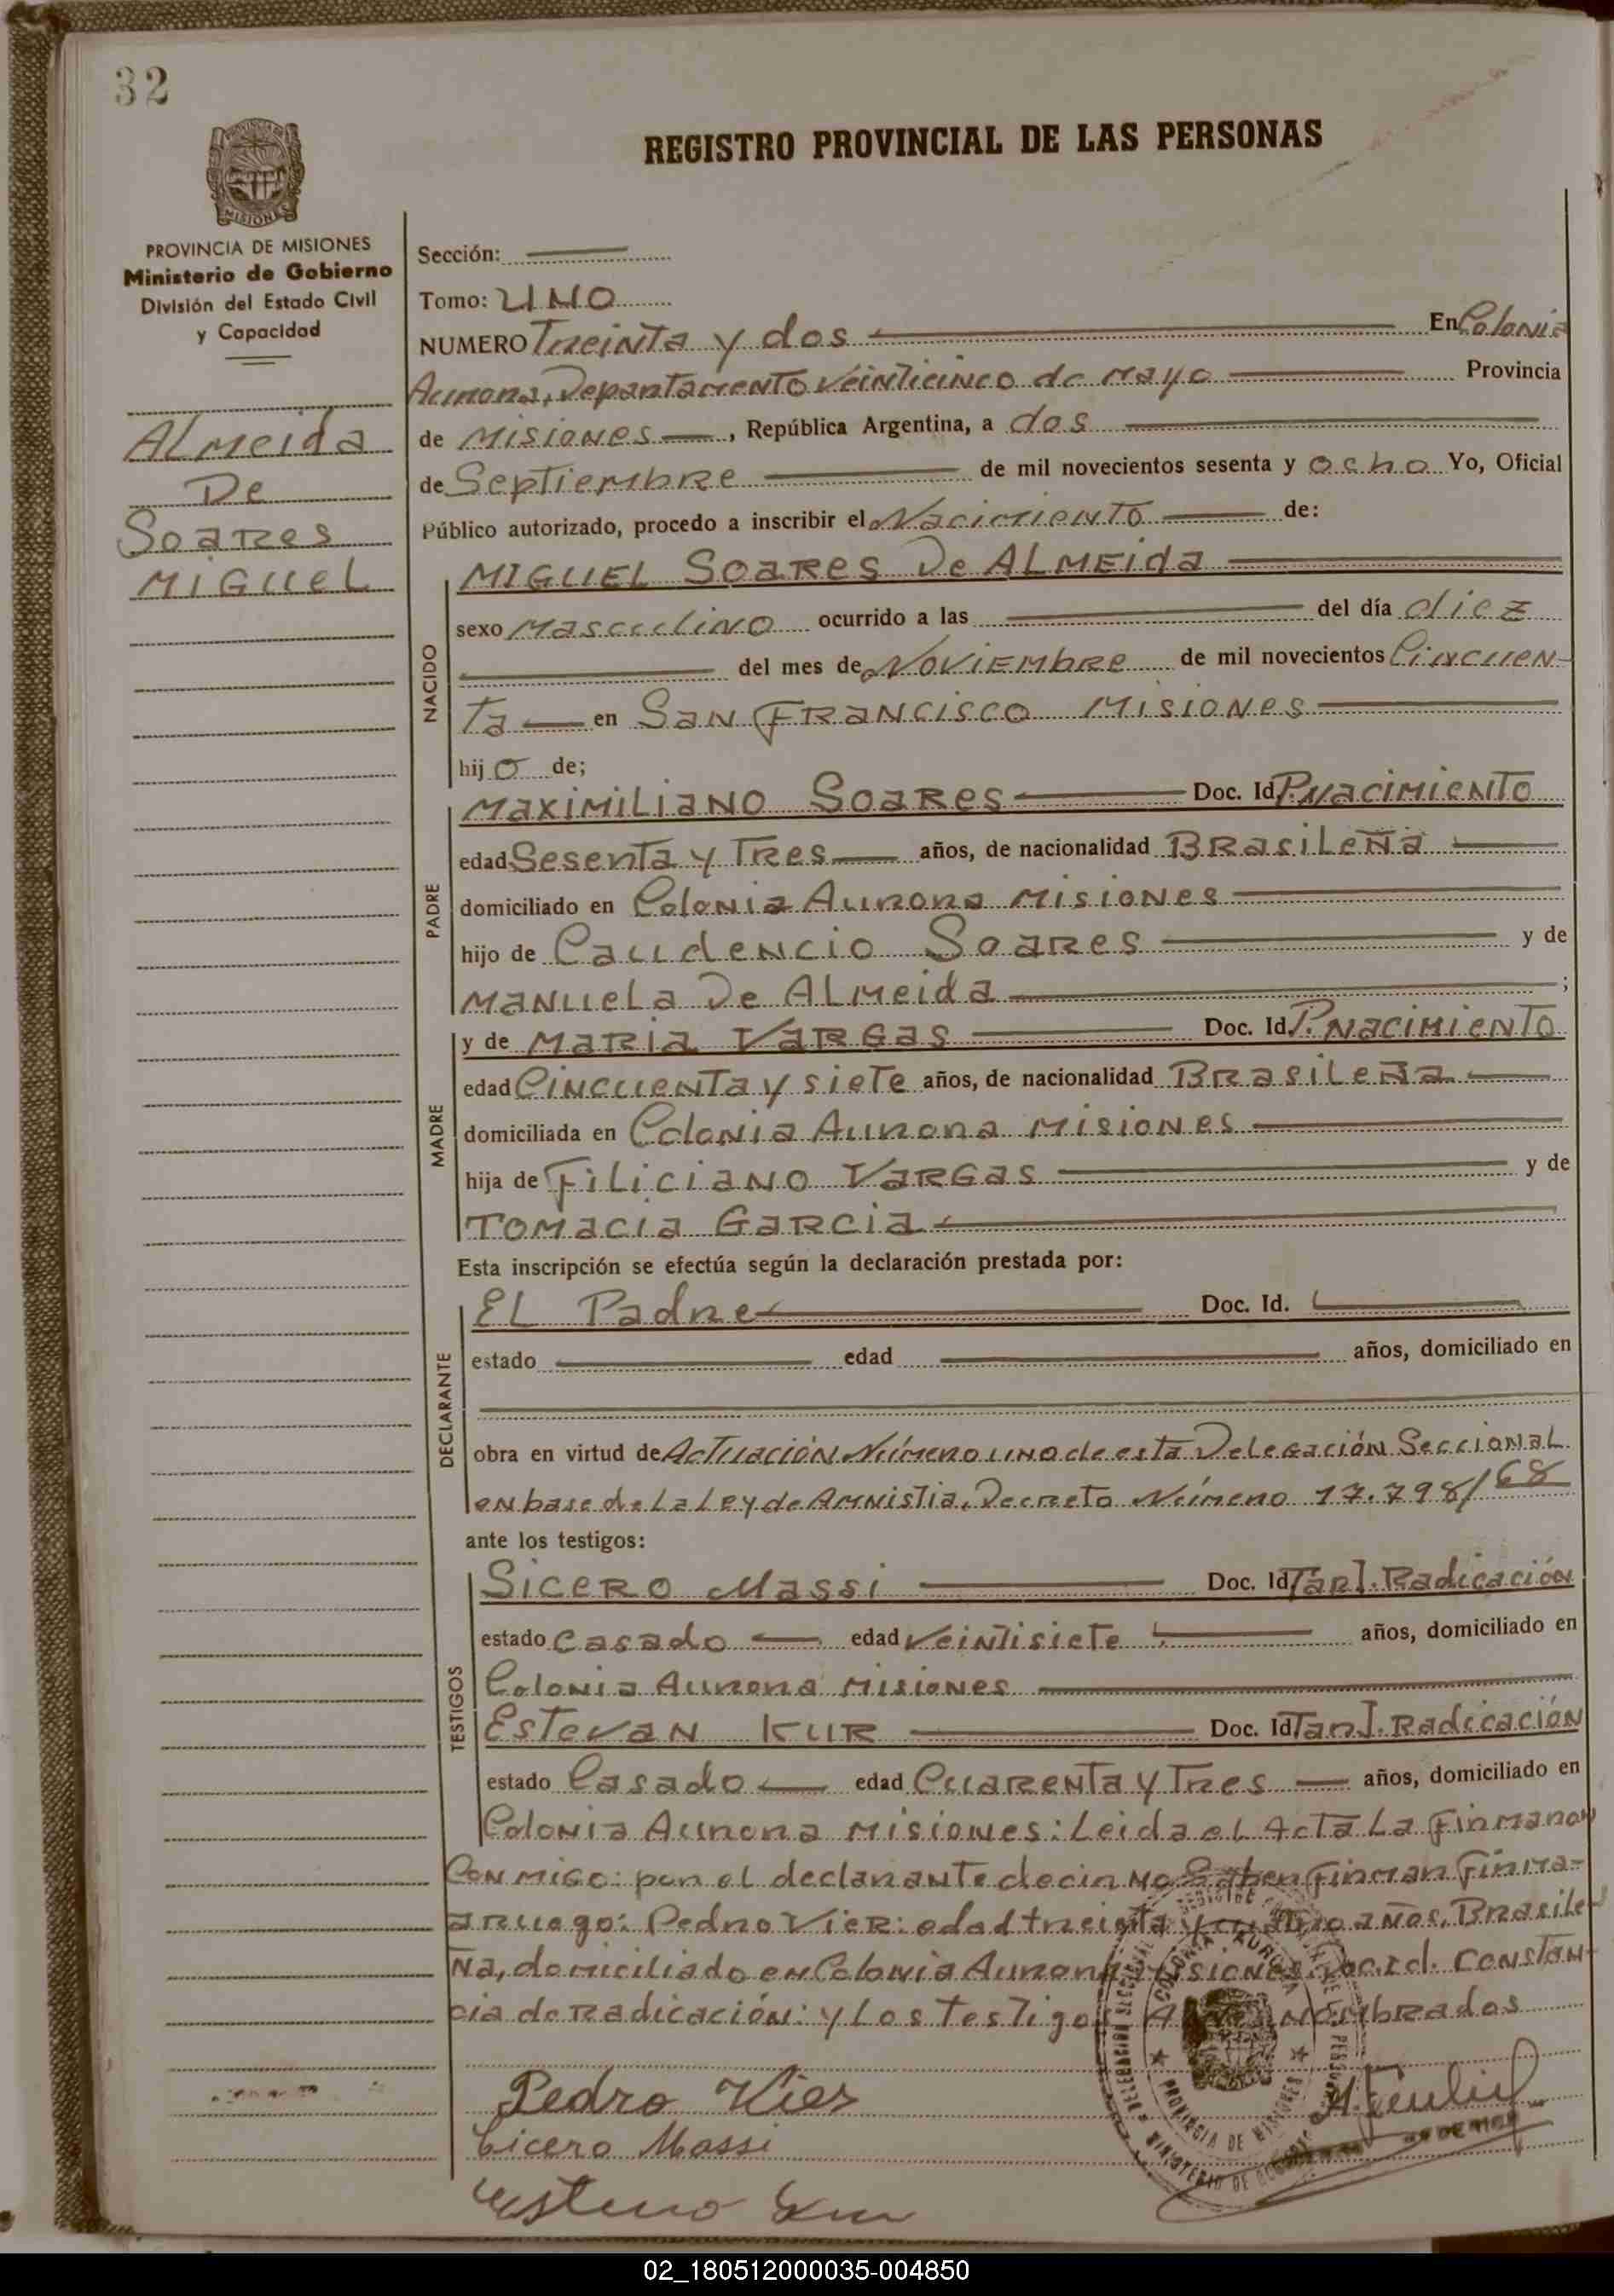 32
REGISTRO PROVINCIAL DE LAS PERSONAS
MISIONES
PROVINCIA DE MISIONES
Ministerio de Gobierno
División del Estado Civil
y Capacidad
ALMeida
De
Soares
MIGUEL
Sección:
Tomo: UNO
NUMERO Treinta y dos En Colonia
Aurora, Departamento Veinticinco de Mayo Provincia
de Misiones, República Argentina, a dos
de Septiembre de mil novecientos sesenta y ocho Yo, Oficial
Público autorizado, procedo a inscribir el Nacimiento de:
NACIDO
MIGUEL Soares De ALMEida
sexo Masculino ocurrido a las del día diez
del mes de Noviembre de mil novecientos Cincuen-
ta en San Francisco Misiones
hijo de;
PADRE
Maximiliano Soares Doc. Id. P. Nacimiento
edad Sesenta y Tres años, de nacionalidad Brasileña
domiciliado en Colonia Aurora Misiones
hijo de Caudencio Soares y de
Manuela De Almeida ;
MADRE
y de Maria Vargas Doc. Id. P. Nacimiento
edad Cincuenta y siete años, de nacionalidad Brasileña
domiciliada en Colonia Aurora Misiones
hija de Filiciano Vargas y de
Tomacia Garcia
Esta inscripción se efectúa según la declaración prestada por:
DECLARANTE
EL Padre Doc. Id.
estado edad años, domiciliado en
obra en virtud de Actuación Número uno de esta Delegación Seccional
en base de La Ley de Amnistia, Decreto Número 17.798/68
ante los testigos:
TESTIGOS
Sicero Massi Doc. Id. Tarj. Radicación
estado Casado edad Veintisiete años, domiciliado en
Colonia Aurora Misiones
Estevan Kur Doc. Id. Tarj. Radicación
estado Casado edad Cuarenta y Tres años, domiciliado en
Colonia Aurora Misiones: Leida el Acta La firmaron
Conmigo: por el declarante decir no saben firman firma-
a ruego: Pedro Vier: edad treinta y cuatro años, Brasile-
ña, domiciliado en Colonia Aurora Misiones Doc. Id. Constan-
cia de Radicación: y Los Testigos Antes Nombrados
COLONIA AURORA
PROVINCIA DE MISIONES
Pedro Vier
Cicero Massi
02_180512000035-004850